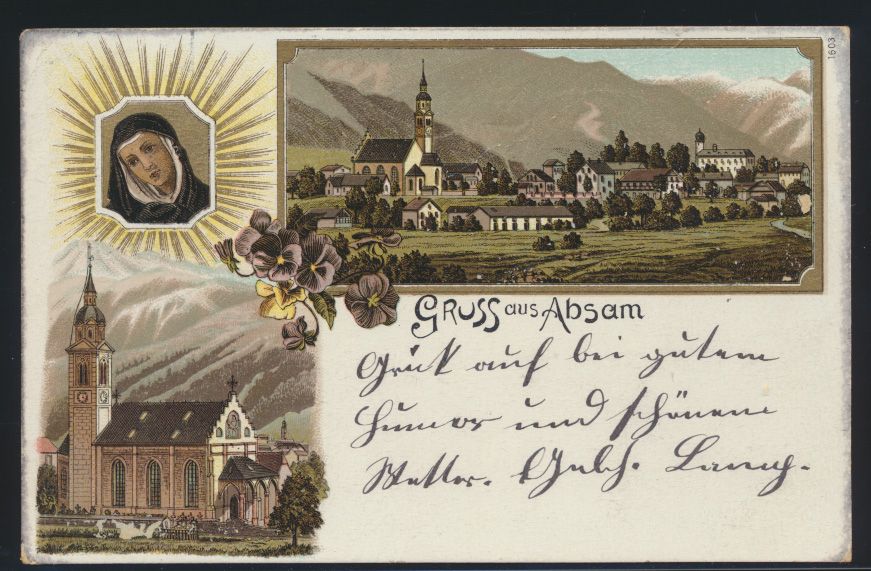 1603
GRUSS aus Absam
Glück auf bei gutem
Humor und schönem
Wetter.